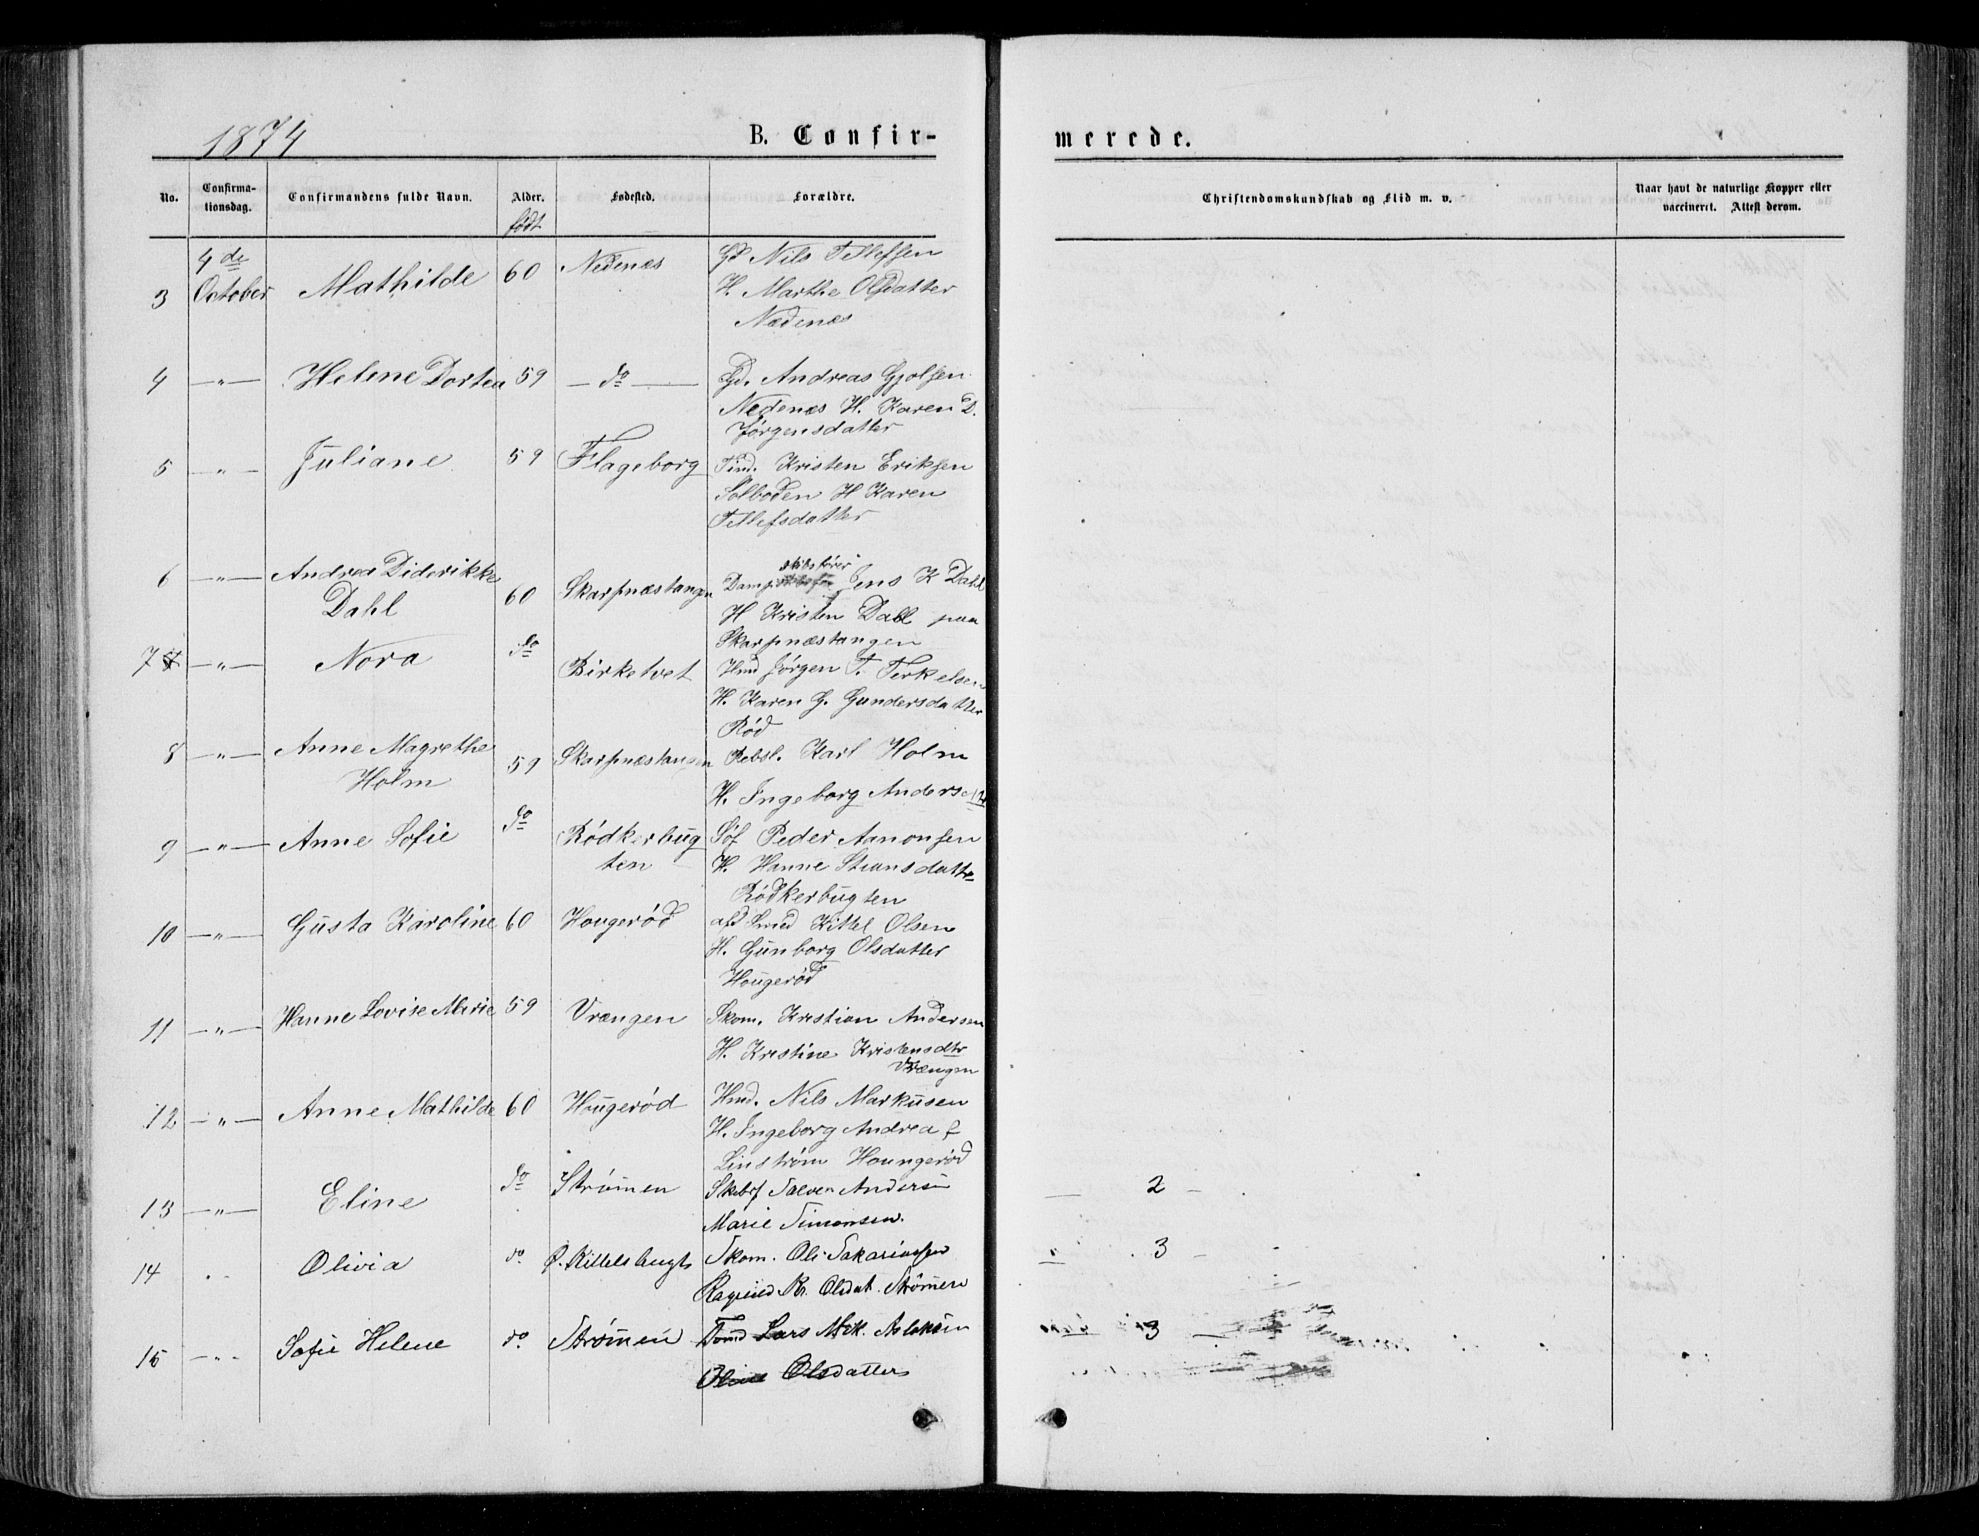 1874
B. Confir-
merede.
No.
Confirma-
tionsdag.
Confirmandens fulde Navn.
Alder.
født
Fødested.
Forældre.
Christendomskundskab og Flid m. v.
Naar havt de naturlige Kopper eller
vaccineret. Attest derom.
4de
3 October Mathilde 60 Nedenæs Gd Nils Tellefsen
H. Marthe Olsdatter
Nædenæs
4 —"— Helene Dortea 59 — do — Gd. Andreas Gjolsen
Nedenæs H. Karen D.
Jørgensdatter
5 —"— Juliane 59 Flageborg Tind. Kristen Eriksen
Solboden H Karen
Tellefsdatter
6 —"— Andrea Diderikke 60 Skarpnæstangen Damp skibsfører Jens K Dahl
Dahl H Kristen Dahl paa
Skarpnæstangen
7 —"— Nora do Birketvet Hmd Jørgen T. Terkelsen
H. Karen G. Gundersdatter
Rød
8 —"— Anne Magrethe 59 Skarpnæstangen Rebsl. Karl Holm
Holm H. Ingeborg Andersen
9 —"— Anne Sofie do Rødkerbug Søf Peder Aanonsen
ten H. Hanne Stiansdatter
Rødkerbugten
10 —"— Gusta Karoline 60 Hougerød afd Smed Kittel Olsen
H. Gunborg Olsdatter
Hougerød
11 —"— Hanne Lovise Marie 59 Vrængen Skom. Kristian Andersen
H. Kristine Kristensdtr
Vrængen
12 —"— Anne Mathilde 60 Hougerød Hmd. Nils Markusen
H. Ingeborg Andrea f
Linstrøm Houngerød
13 —"— Eline do Strømen Skibsf Talven Andersen — 2 —
Marie Simonsen.
14 Olivia do Ø. Kittelsbugt Skom. Ole Sakariassen " 3 —
Ragnild Kr. Olsdat. Strømen
15 —"— Sofie Helene do Strømen Tømd Lars Mik. Aslaksen 3 —
Oline Olsdatter